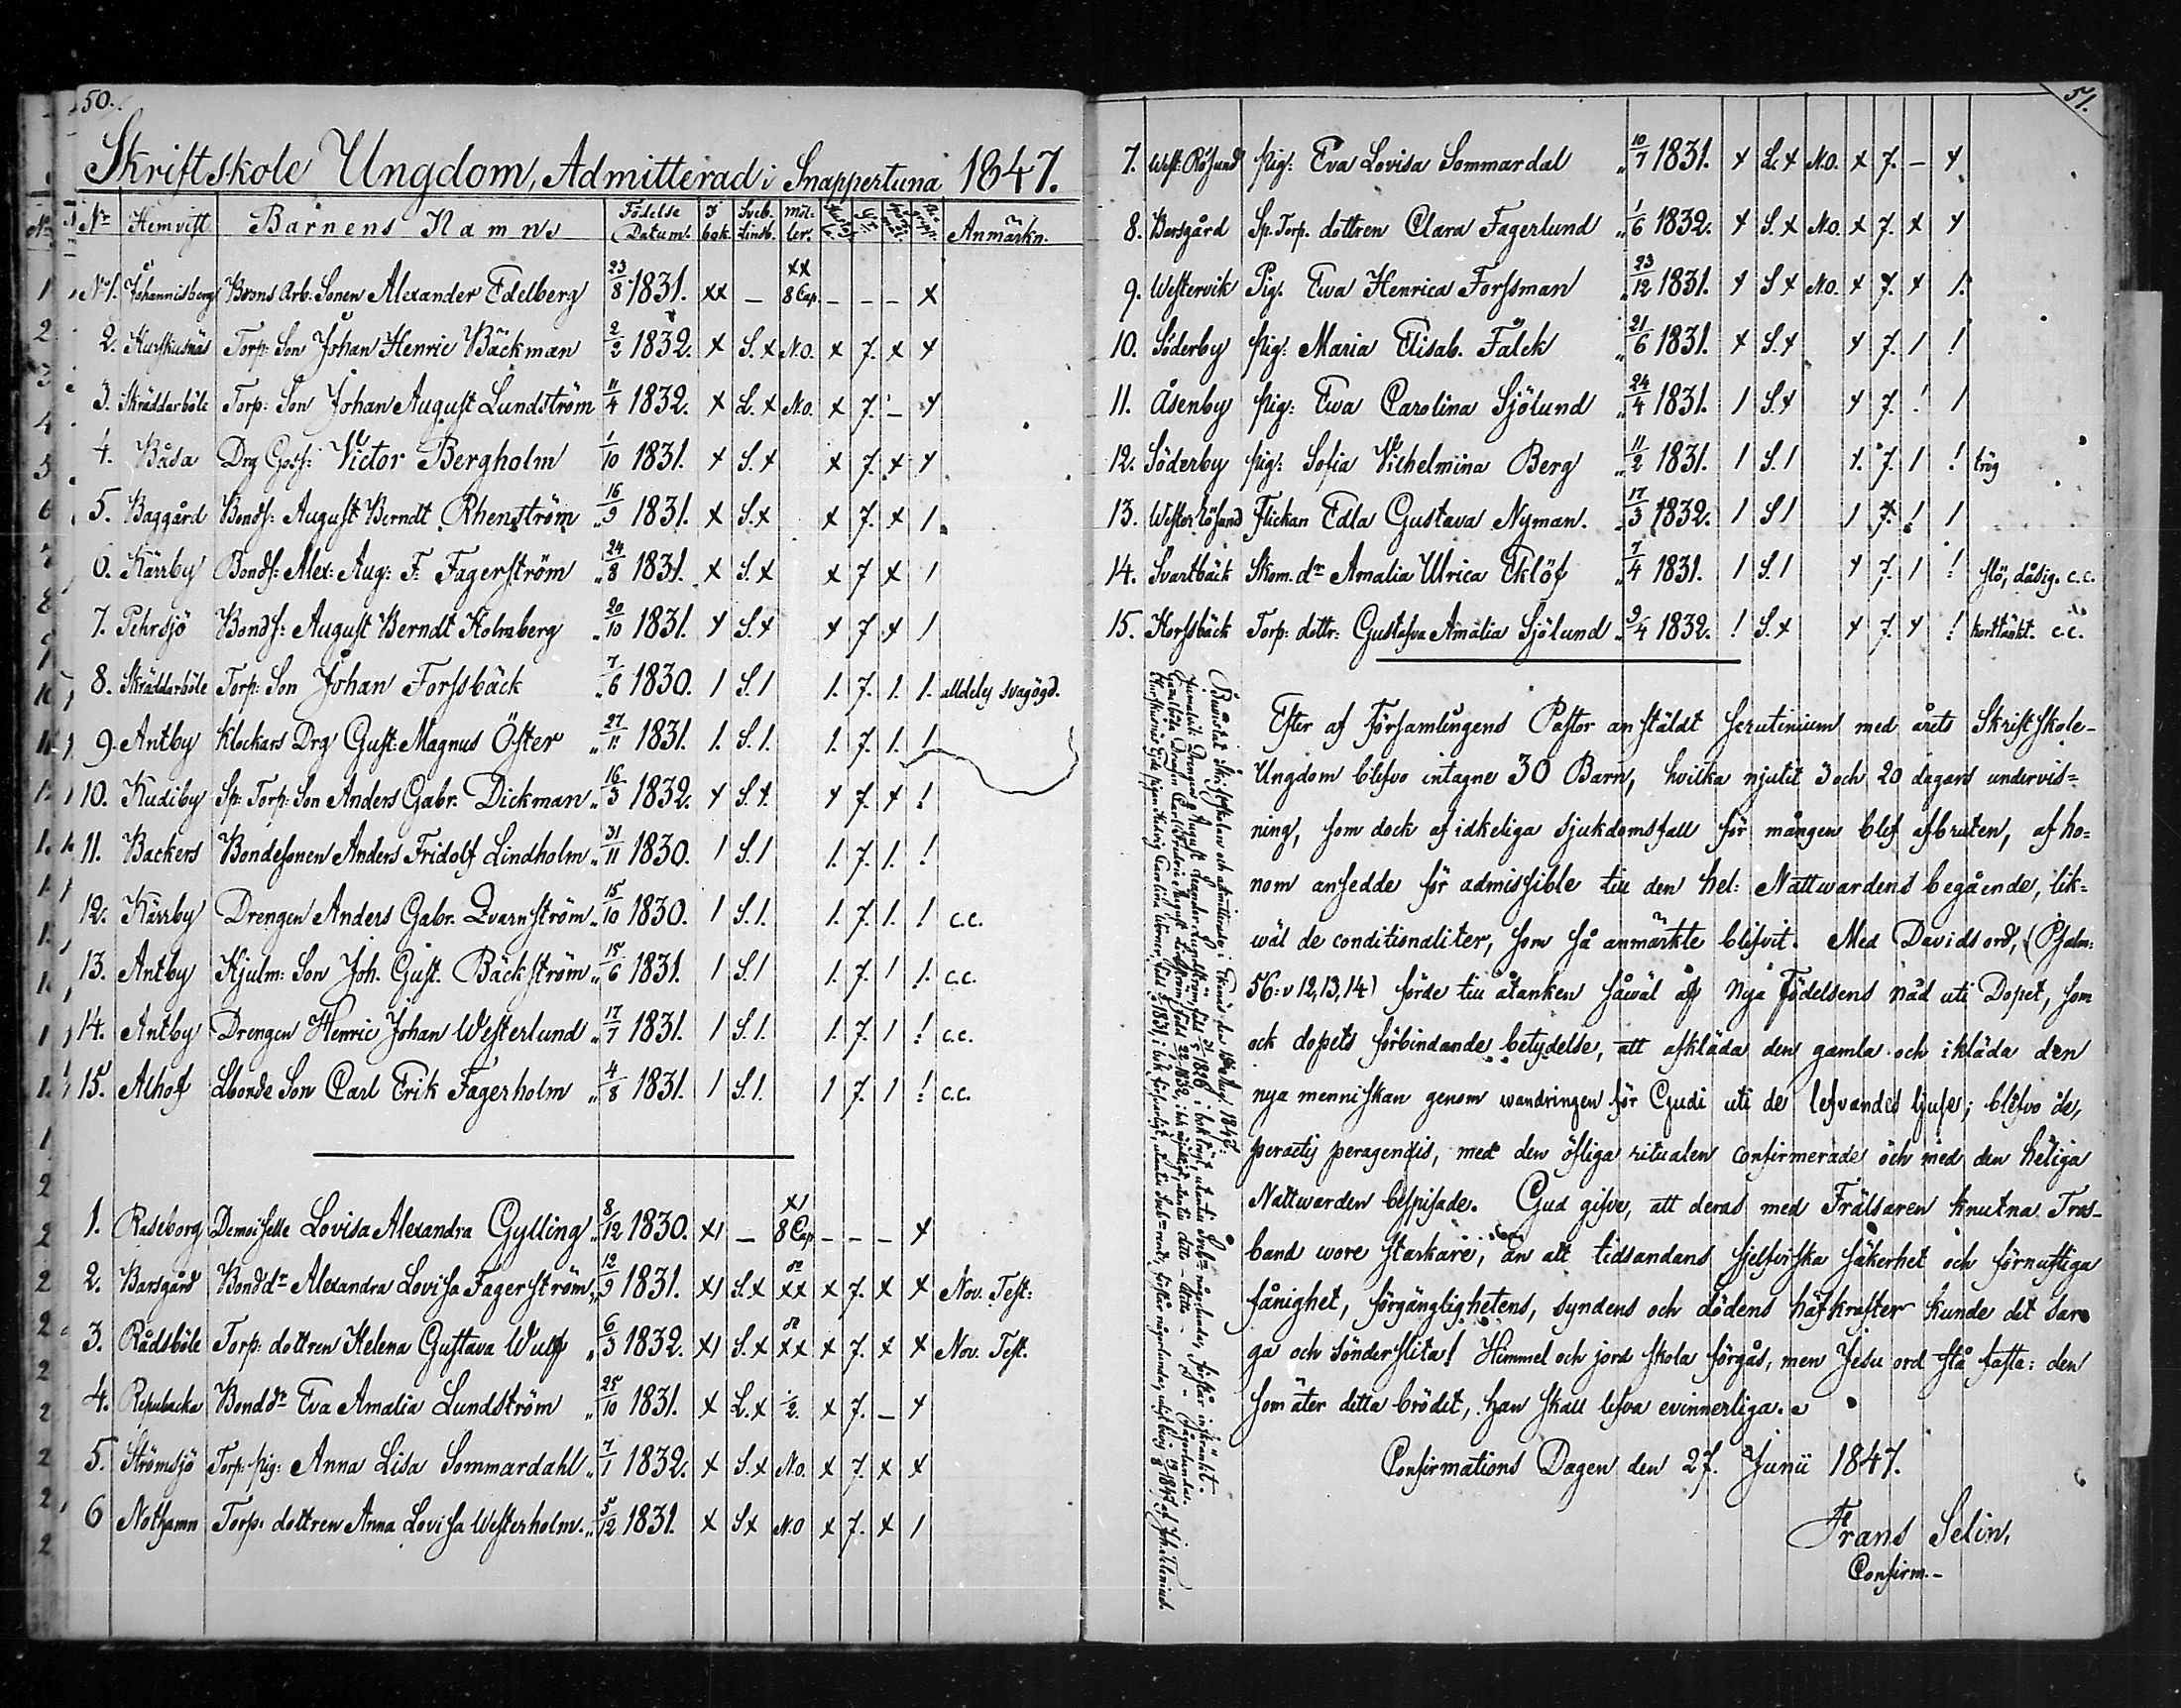 50.
Skriftskole Ungdom, Admitterad i Snappertuna 1847.
No Hemvist Barnens Namn Födelse Datum. I bok. Sveb. Lindb. Möl- ler. Anmärkn.
No 1. Johannisberg Arb: Sonen Alexander Edelberg 23/8 1831. xx — xx 8 Cap. — — — x
2. Torp: Son Johan Henric Bäckman 2/2 1832. x S. x N.O. x 7. x x
3. Skräddarböle Torp: Son Johan August Lundström 11/4 1832. x L. x N.O. x 7. — x
4. Båsa Drg Goss: Victor Bergholm 1/10 1831. x S. x x 7. x x
5. Baggård Bonds: August Berndt Rhenström „ 16/9 1831. x S. x x 7. x 1.
6. Kärrby Bonds: Alex: Aug: F: Fagerström „ 24/8 1831. x S. x x 7 x 1
7. Pehrsjö Bonds: August Berndt Holmberg „ 20/10 1831. x S. x x 7 x 1
8. Skräddarböle Torp: Son Johan Forssbäck „ 7/6 1830. 1 S. 1 1. 7. 1. 1. alldeles svagögd.
9. Antby Klockars Drg Gust: Magnus Öster „ 27/11 1831. 1. S. 1. 1. 7. 1. !
10. Kudiby Sp: Torp: Son Anders Gabr. Dickman „ 16/3 1832. x S. x. x 7. x !
11. Backers Bondesonen Anders Fridolf Lindholm „ 31/11 1830. 1 S. 1 1. 7. 1. !
12. Kärrby Drengen Anders Gabr. Qvarnström „ 15/10 1830. 1 S. 1. 1. 7. 1. ! c.c.
13. Antby Hjulm: Son Joh. Gust. Bäckström „ 15/6 1831. 1 S. 1 1. 7. 1 1. c.c.
14. Antby Drengen Henric Johan Westerlund „ 17/7 1831. 1 S. 1. 1. 7. 1 ! c.c.
15. Alhof Lbonde Son Carl Erik Fagerholm „ 4/8 1831. 1 S. 1. 1 7. 1 ! c.c.
1. Raseborg Demoiselle Lovisa Alexandra Gylling „ 8/12 1830. x1 — x1 8 Cap — — — x
2. Barsgård Bond dr Alexandra Lovisa Fagerström „ 12/9 1831. x1 S. x xx x 7. x x Nov. Test:
3. Rådsböle Torp: dottren Helena Gustava Wulff „ 6/3 1832. x1 S. x xx x 7. x x Nov. Test.
4. Repubacka Bond dr Eva Amalia Lundström „ 25/10 1831. x L. x 1/2. x 7. — x
5. Strömsjö Torp: pig: Anna Lisa Sommardahl „ 7/1 1832. x S. x N.O. x 7. x x
6 Nothamn Torp: dottren Anna Lovisa Westerholm. „ 5/12 1831. x S x N.O x 7. x 1
51.
7. West: Rösund pig: Eva Lovisa Sommardal „ 10/7 1831. x L. x N.O. x 7. — x
8. Barsgård Sp. Torp. dottren Clara Fagerlund „ 1/6 1832. x S. x N.O. x 7. x x
9. Westervik Pig. Ewa Henrica Forssman „ 23/12 1831. x S x N.O. x 7. x 1.
10. Söderby pig: Maria Elisab. Falck „ 21/6 1831. x S. x x 7. 1 !
11. Åsenby pig: Ewa Carolina Sjölund „ 24/4 1831. 1 S. x x 7. ! 1
12. Söderby pig: Sofia Vilhelmina Berg „ 11/2 1831. 1 S. 1 1. 7. 1 ! trög
13. Westerrösund Flickan Edla Gustava Nyman. „ 17/3 1832. 1 S 1 1 7. ! 1
14. Svartbäck Skom. dr Amalia Ulrica Eklöf „ 7/4 1831. 1 S. 1 x 7. 1 ! slö, dåsig. c.c.
15. Korssbäck Torp: dottr: Gustafva Amalia Sjölund „ 2/4 1832. ! S. x x 7. x ! korttänkt. c.c.
Efter af Församlingens Pastor anstäldt scrutinium med årets Skriftskole-
Ungdom blefvo intagne 30 Barn, hvilka njutit 3 och 20 dagars undervis=
ning, som dock af idkeliga sjukdomsfall för mången blef afbruten, af ho=
nom ansedde för admissible till den hel: Nattwardens begående, lik=
wäl de conditionaliter, som så anmärkte blifvit. Med Davids ord, (Psalm:
56: v 12, 13, 14) förde till åtanken såwäl af Nya Födelsens nåd uti Dopet, som
ock dopets förbindande betydelse, att afkläda den gamla och ikläda den
nya menniskan genom wandringen för Gudi uti de lefvandes ljuse; blefvo de,
peractis peragendis, med den öfliga ritualen confirmerade och med den heliga
Nattwarden bespisade. Gud gifve, att deras med Frälsaren knutna Tros-
band wore starkare, än att tidsandans sjelfviska säkerhet och förnuftiga
fånighet, förgänglighetens, syndens och dödens häfkrafter kunde det sar
ga och sönderslita! Himmel och jord skola förgås, men Jesu ord stå fasta: den
som äter detta brödet, han skall lefva evinnerliga.
Confirmations Dagen den 27. Junii 1847.
Frans Selin,
Confirm.-
Bivistat Skriftskolan och admitterade i Ekenäs den Aug. 1847: